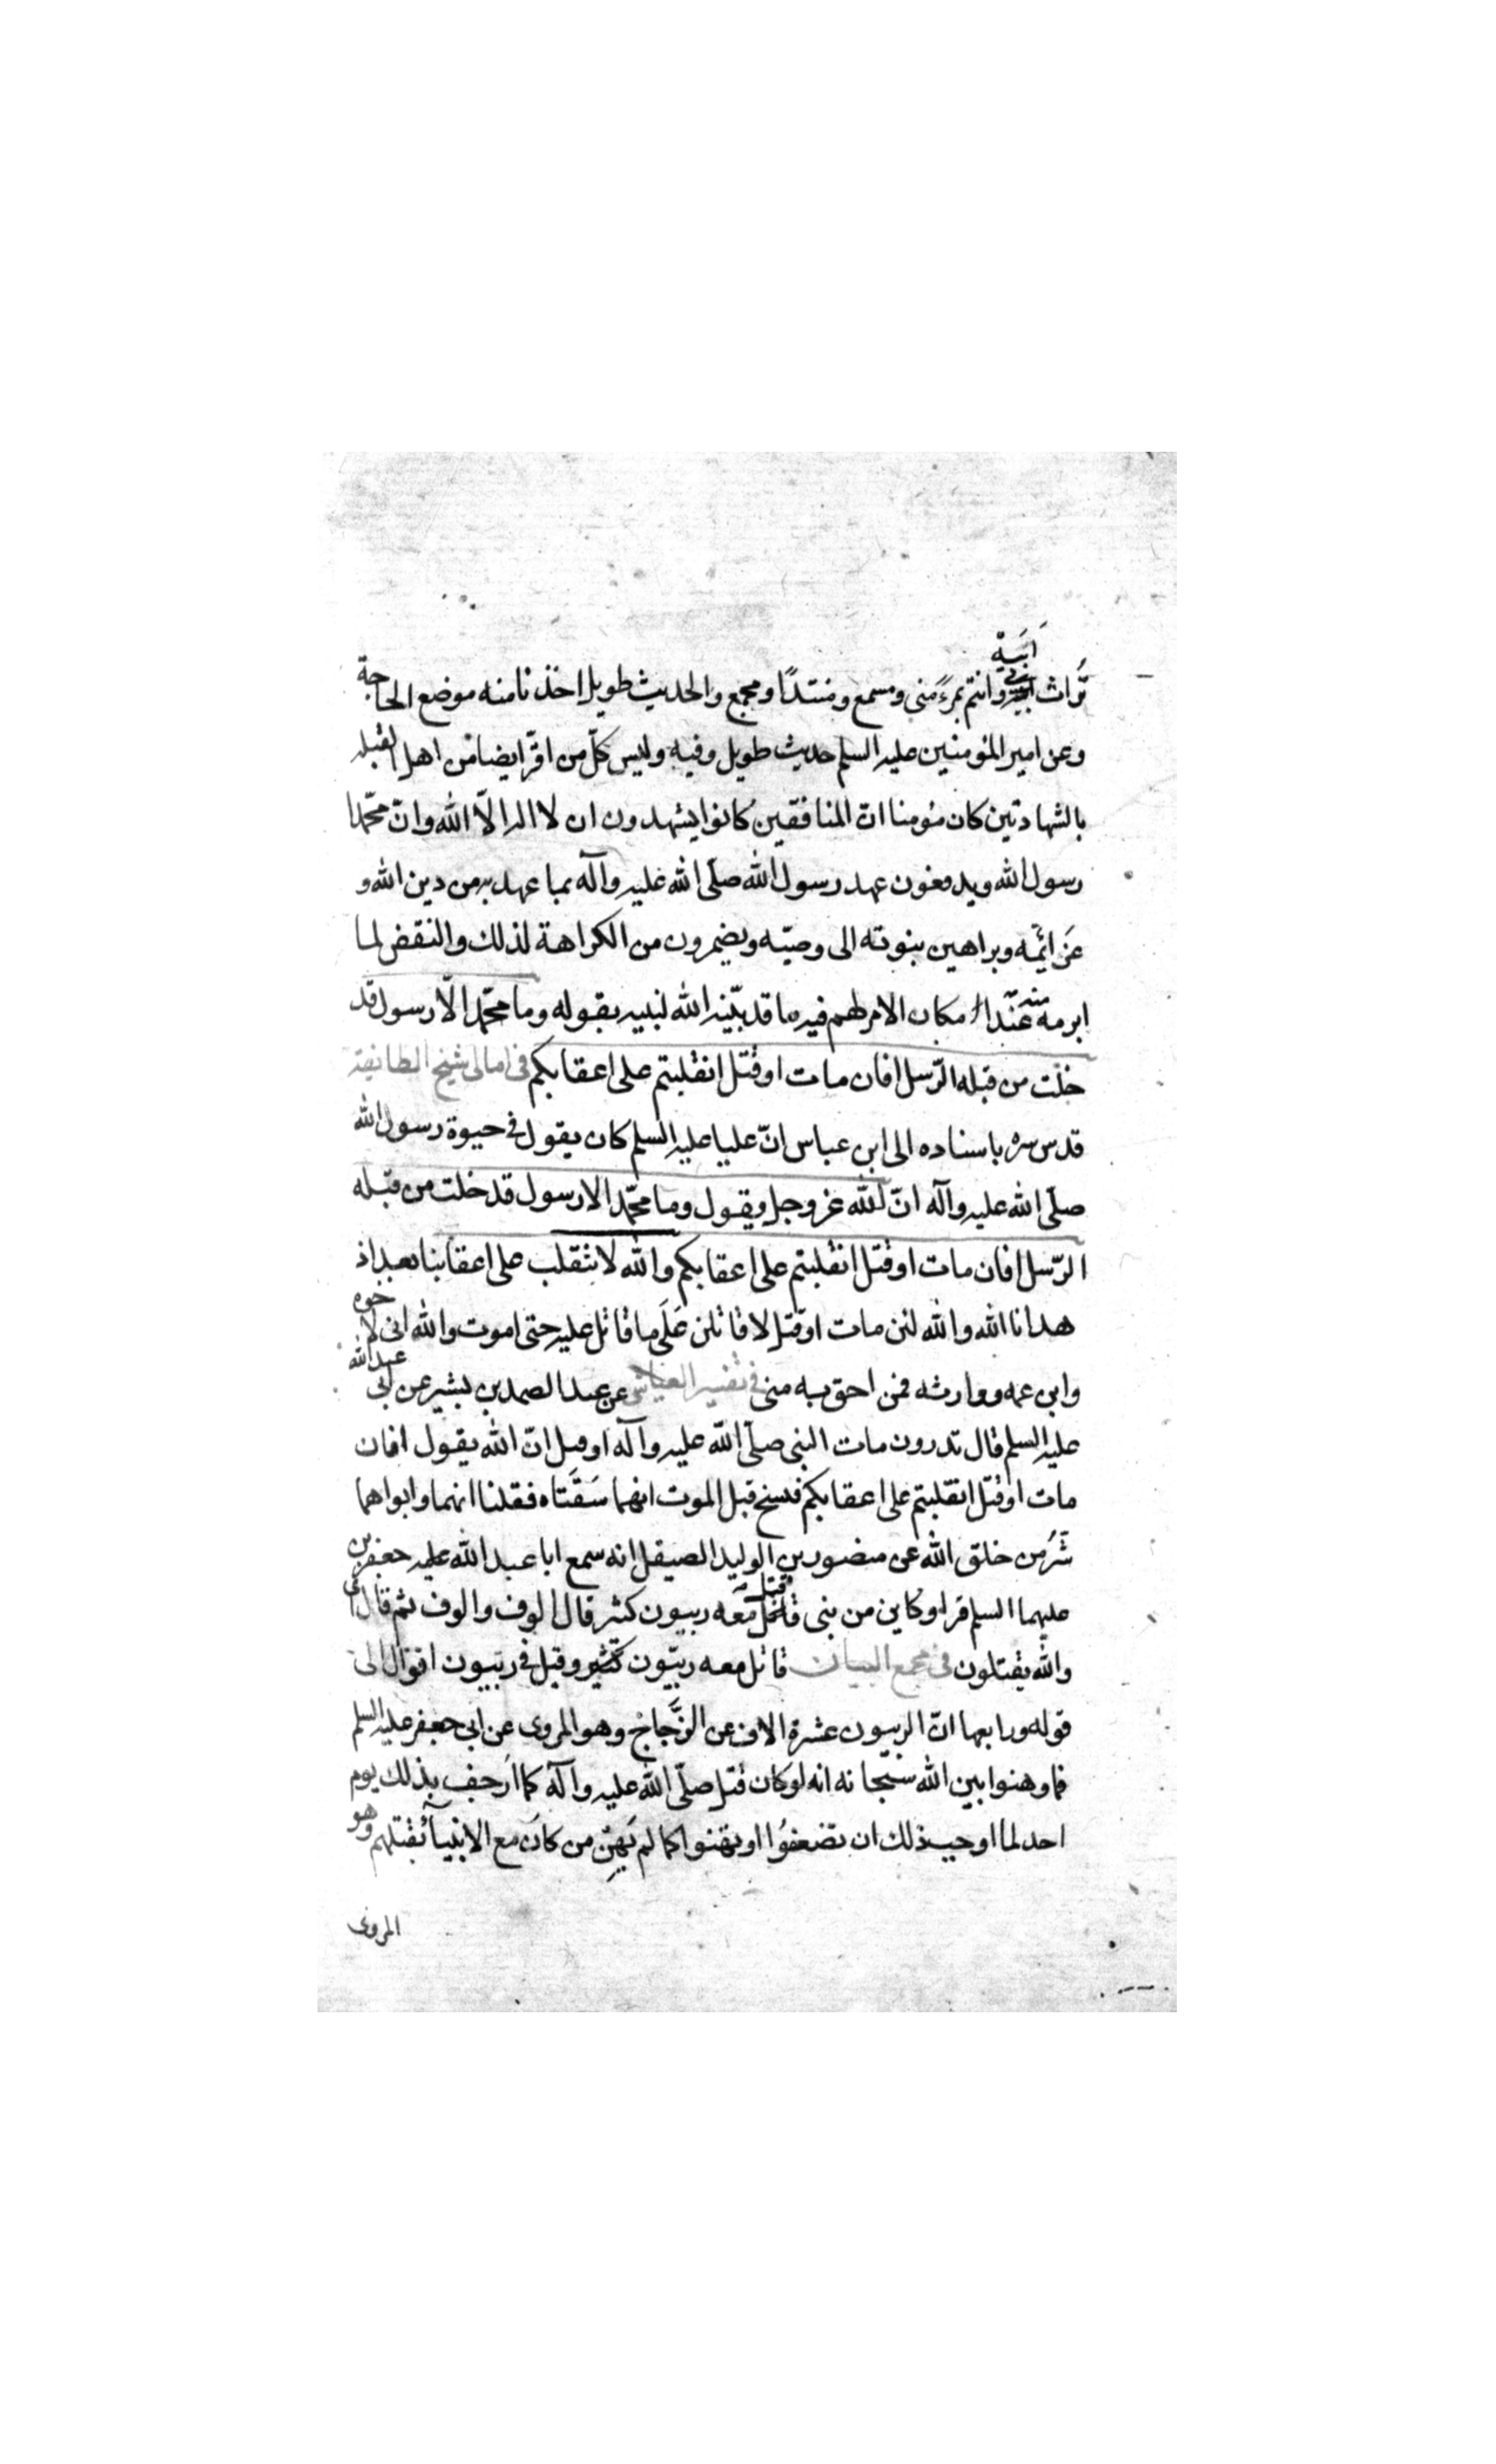 ابَيَة
تُراث ابيه وانتم بمرءً منى ومسمع ومنتدًا ومجمع والحديث طويل اخذنا منه موضع الحاجة
وعن امير المؤمنين عليه السلم حديث طويل وفيه وليس كلّ من اقرّ ايضا من اهل القبله
بالشهادتين كان مؤمنا انّ المنافقين كانوا يشهدون ان لا اله الّا الله وانّ محمّدا
رسول الله ويدفعون عهد رسول الله صلّى الله عليه وآله بما عهد به من دين الله و
عزائمه وبراهين بنوته الى وصيّه ويضمرون من الكراهة لذلك والنقض لما
ابرمه منه عند امكان الامر لهم فيه ما قد بيّنه الله لنبيه بقوله وما محمّد الّا رسول قد
خلت من قبله الرّسل افان مات او قتل انقلبتم على اعقابكم فى امالى شيخ الطائفة
قدس سره باسناده الى ابن عباس انّ عليا عليه السلم كان يقول فى حيوة رسول الله
صلّى الله عليه وآله انّ الله عز وجل يقول وما محمّد الا رسول قد خلت من قبله
الرّسل افان مات او قتل انقلبتم على اعقابكم والله لا ننقلب على اعقابنا بعد اذ
هدانا الله والله لئن مات او قتل لاقاتلن عَلَى ما قاتل عليه حتى اموت والله انى لاخوه
وابن عمه ووارثه فمن احق به منى فى تفسير العياشى عن عبد الصمد بن بشير عن ابى عبد الله
عليه السلم قال تدرون مات النبى صلّى الله عليه وآله او قتل انّ الله يقول افان
مات او قتل انقلبتم على اعقابكم فسخ قبل الموت انهما سَقَتَاه فقلنا انهما وابواهما
شَرّ من خلق الله عن منصور بن الوليد الصيقل انه سمع ابا عبد الله عليه جعفر بن
عليهما السلم قرا وكاين من نبى قتل معه ربيون كثير قال الوف والوف ثم قال اى
والله يقتلون فى مجمع البيان قاتل معه ربيّون كثير وقيل فى ربّيون اقوال الى
قوله ورابعها انّ الربيون عشرة الاف عن الزّجاج وهو المروى عن ابى جعفر عليه السلم
فما وهنوا بين الله سبّحانه انه لو كان قتل صلّى الله عليه وآله كما اَرجف بذلك يوم
احد لما اوجب ذلك ان تضعفُوا او تهنوا كما لم يَهِن من كانَ مع الانبيآء بقتلهم وهو
المروى